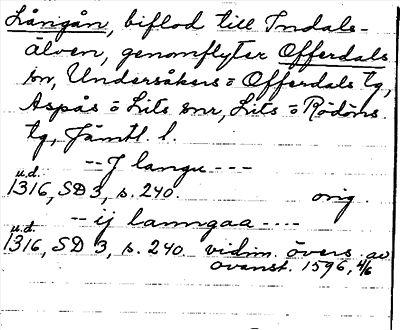 Långån, biflod till Indals-
älven, genomflyter Offerdals
sn, Undersåkers o Offerdals tg,
Aspås o Lits snr, Lits o Rödöns
tg, Jämtl. l.
-- J langu ---
u.d.
1316, SD 3, s. 240. orig.
-- ij lanngaa ----
u.d.
1316, SD 3, s. 240 vidim. övers. av
ovanst. 1596, 4/6